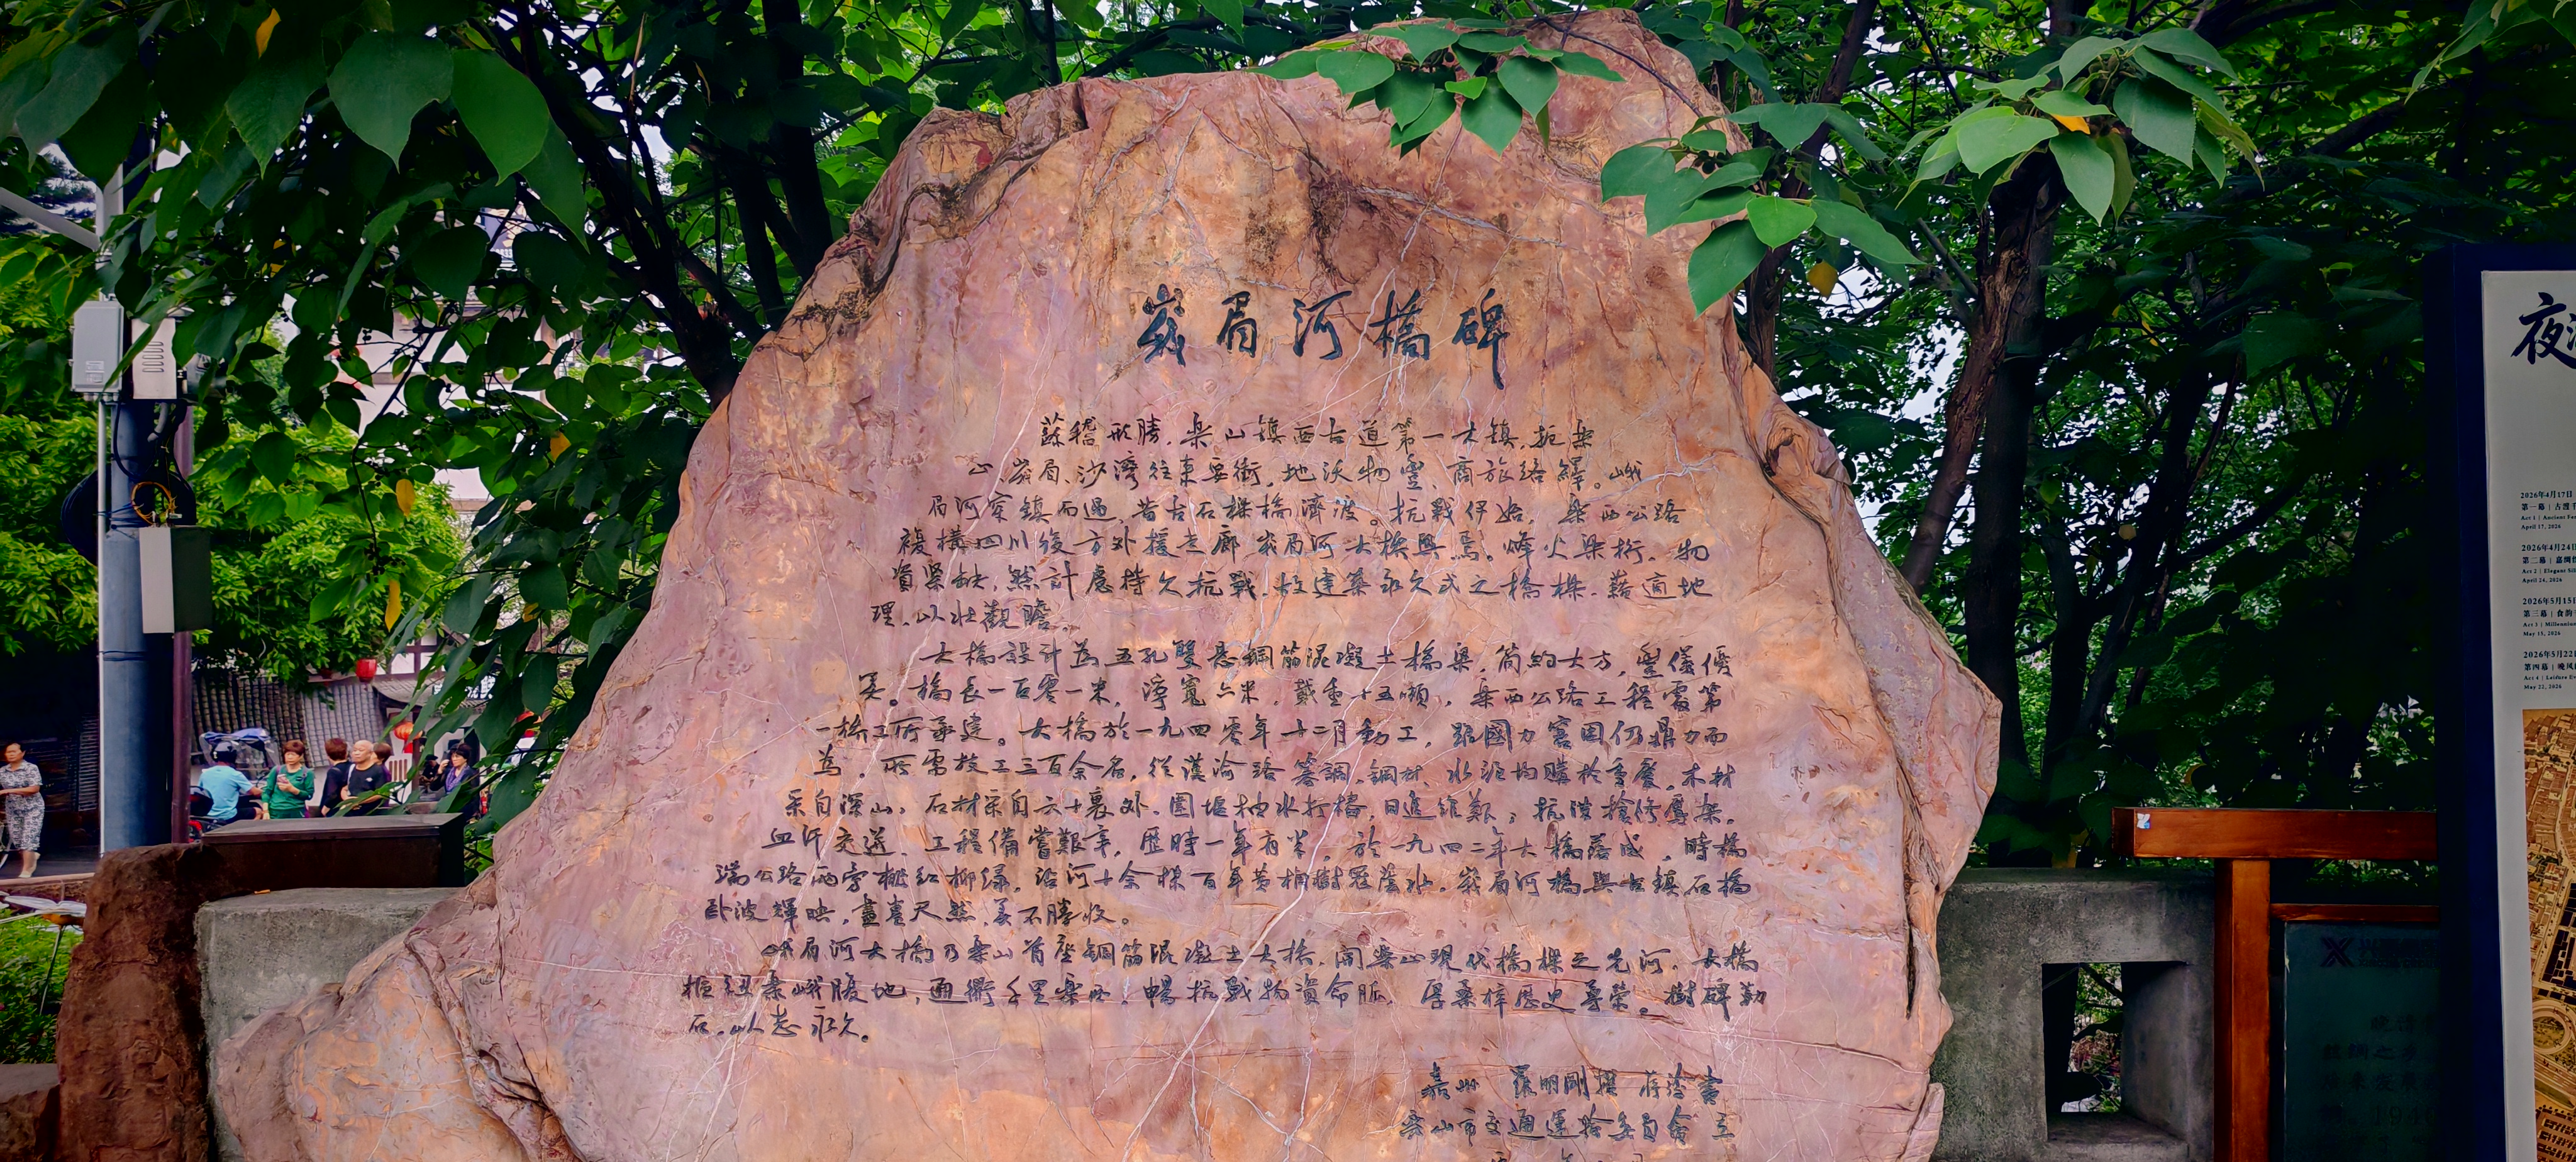 峩眉河橋碑
蘇稽形勝，樂山鎮西古道第一大鎮，扼樂
山、峩眉、沙灣往來要衝，地沃物豐，商旅絡繹。峨
眉河穿鎮而過，昔古石樑橋濟渡。抗戰伊始，樂西公路
複構四川後方外援走廊，峩眉河大橋興焉。烽火梁桁，物
資緊缺，然計慮持久抗戰，故建築永久式之橋樑，藉適地
理，以壯觀瞻。
大橋設計為五孔雙懸鋼筋混凝土橋梁，簡約大方，豐儀優
美。橋長一百零一米，淨寬六米，載重十五噸，樂西公路工程處第
一橋工所承建。大橋於一九四零年十二月動工，雖國力窘困仍鼎力而
為，所需技工三百余名，從漢渝路籌調，鋼材、水泥均購於重慶，木材
采自深山，石材采自六十裏外，圍堰抽水打樁，日進維艱；抗洪搶修鷹架，
血汗交迸，工程備嘗艱辛，歷時一年有半，於一九四二年大橋落成，時橋
端公路兩旁桃紅柳綠，沿河十余株百年黄桷樹冠蔭水，峩眉河橋與古鎮石橋
卧波輝映，畫意天然，美不勝收。
峨眉河大橋乃樂山首座鋼筋混凝土大橋，開樂山現代橋樑之先河，大橋
樞紐樂峨腹地，通衢千里樂西，暢抗戰物資命脈，厝桑梓歷史尊榮。樹碑勒
石，以志永久。
嘉州 羅明剛撰 蔣蓉書
樂山市交通運輸委員會 立
夜
2026年4月17日
第一幕 | 古渡
Act 1 | Ancient
April 17, 2026
2026年4月24日
第二幕 | 嘉
Act 2 | Elegant
April 24, 2026
2026年5月15日
第三幕 | 食
Act 3 |
May 15, 2026
2026年5月22日
第四幕 | 晚风
Act 4 | Leisure
May 22, 2026